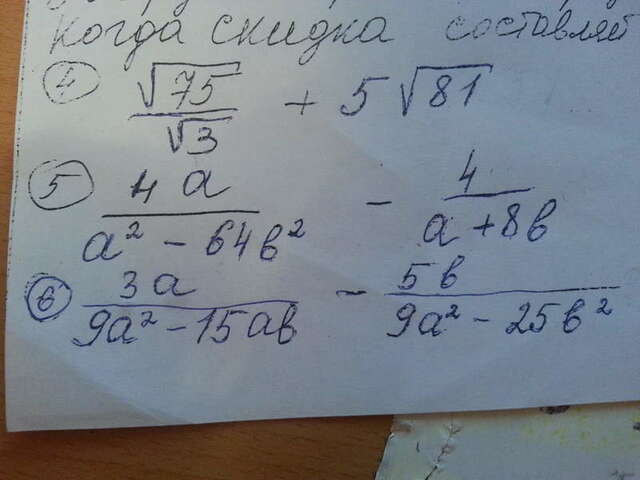 Когда скидка составляет
④ √75/√3 + 5√81
⑤ 4a/(a² - 64b²) - 4/(a + 8b)
⑥ 3a/(9a² - 15ab) - 5b/(9a² - 25b²)